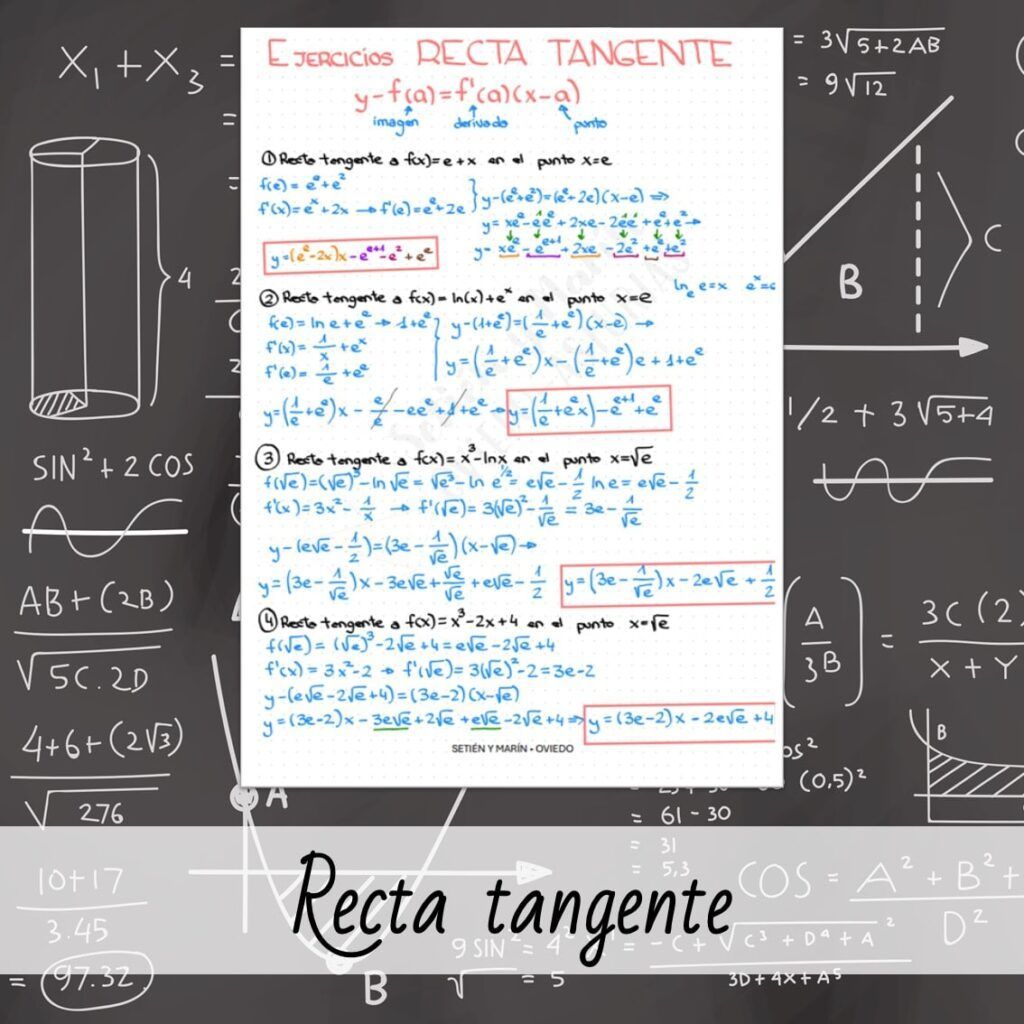 X₁ + X₃ =
=
4
SIN² + 2 COS
AB + (2B)
√5C.2D
4+6+(2√3)
√276
10+17
3.45
= 97.32
EJERCICIOS RECTA TANGENTE
y-f(a)=f'(a)(x-a)
imagen derivada punto
① Recta tangente a f(x)=e+x en el punto x=e
f(e)=eᵉ+e²
f'(x)=eˣ+2x → f'(e)=eᵉ+2e } y-(eᵉ+e²)=(eᵉ+2e)(x-e) ⇒
y=xeᵉ-eeᵉ+2xe-2ee+eᵉ+e² →
y=xeᵉ-eᵉ⁺¹+2xe-2e²+eᵉ+e²
y=(eᵉ-2x)x-eᵉ⁺¹-e²+eᵉ
lnₑ e=x eˣ=e
② Recta tangente a f(x)=ln(x)+eˣ en el punto x=e
f(e)=ln e+eᵉ → 1+eᵉ
f'(x)=1/x+eˣ
f'(e)=1/e+eᵉ
y-(1+eᵉ)=(1/e+eᵉ)(x-e) →
y=(1/e+eᵉ)x-(1/e+eᵉ)e+1+eᵉ
y=(1/e+eᵉ)x-e/e-eeᵉ+1+eᵉ → y=(1/e+eᵉx)-eᵉ⁺¹+eᵉ
③ Recta tangente a f(x)=x³-lnx en el punto x=√e
f(√e)=(√e)³-ln√e=√e³-ln e^1/2=e√e-1/2 ln e=e√e-1/2
f'(x)=3x²-1/x → f'(√e)=3(√e)²-1/√e=3e-1/√e
y-(e√e-1/2)=(3e-1/√e)(x-√e) →
y=(3e-1/√e)x-3e√e+√e/√e+e√e-1/2 y=(3e-1/√e)x-2e√e+1/2
④ Recta tangente a f(x)=x³-2x+4 en el punto x=√e
f(√e)=(√e)³-2√e+4=e√e-2√e+4
f'(x)=3x²-2 → f'(√e)=3(√e)²-2=3e-2
y-(e√e-2√e+4)=(3e-2)(x-√e)
y=(3e-2)x-3e√e+2√e+e√e-2√e+4 ⇒ y=(3e-2)x-2e√e+4
SETIÉN Y MARÍN • OVIEDO
= 3√5+2AB
= 9√12
B
C
1/2 + 3√5+4
(A/3B) = 3C (2)
X + Y
B
(0,5)²
= 61 - 30
= 31
= 5,3
A
Recta tangente
COS = A² + B² +
D²
9 SIN² = 4²
= 5
= -C + √C³ + D⁴ + A²
3D + 4X + A⁵
B